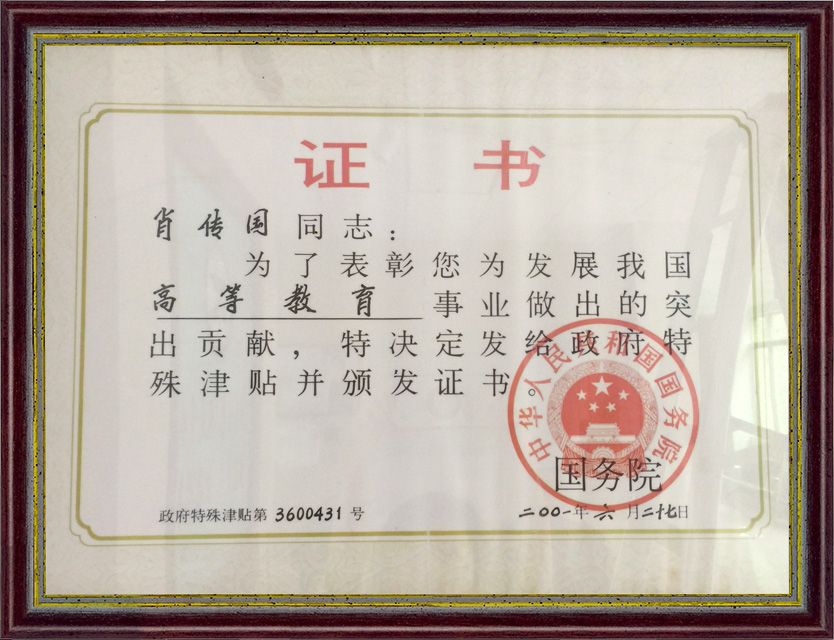 证书
肖传国同志：
为了表彰您为发展我国
高等教育事业做出的突
出贡献，特决定发给政府特
殊津贴并颁发证书。
中华人民共和国国务院
国务院
政府特殊津贴第3600431号
二〇〇一年六月二十七日